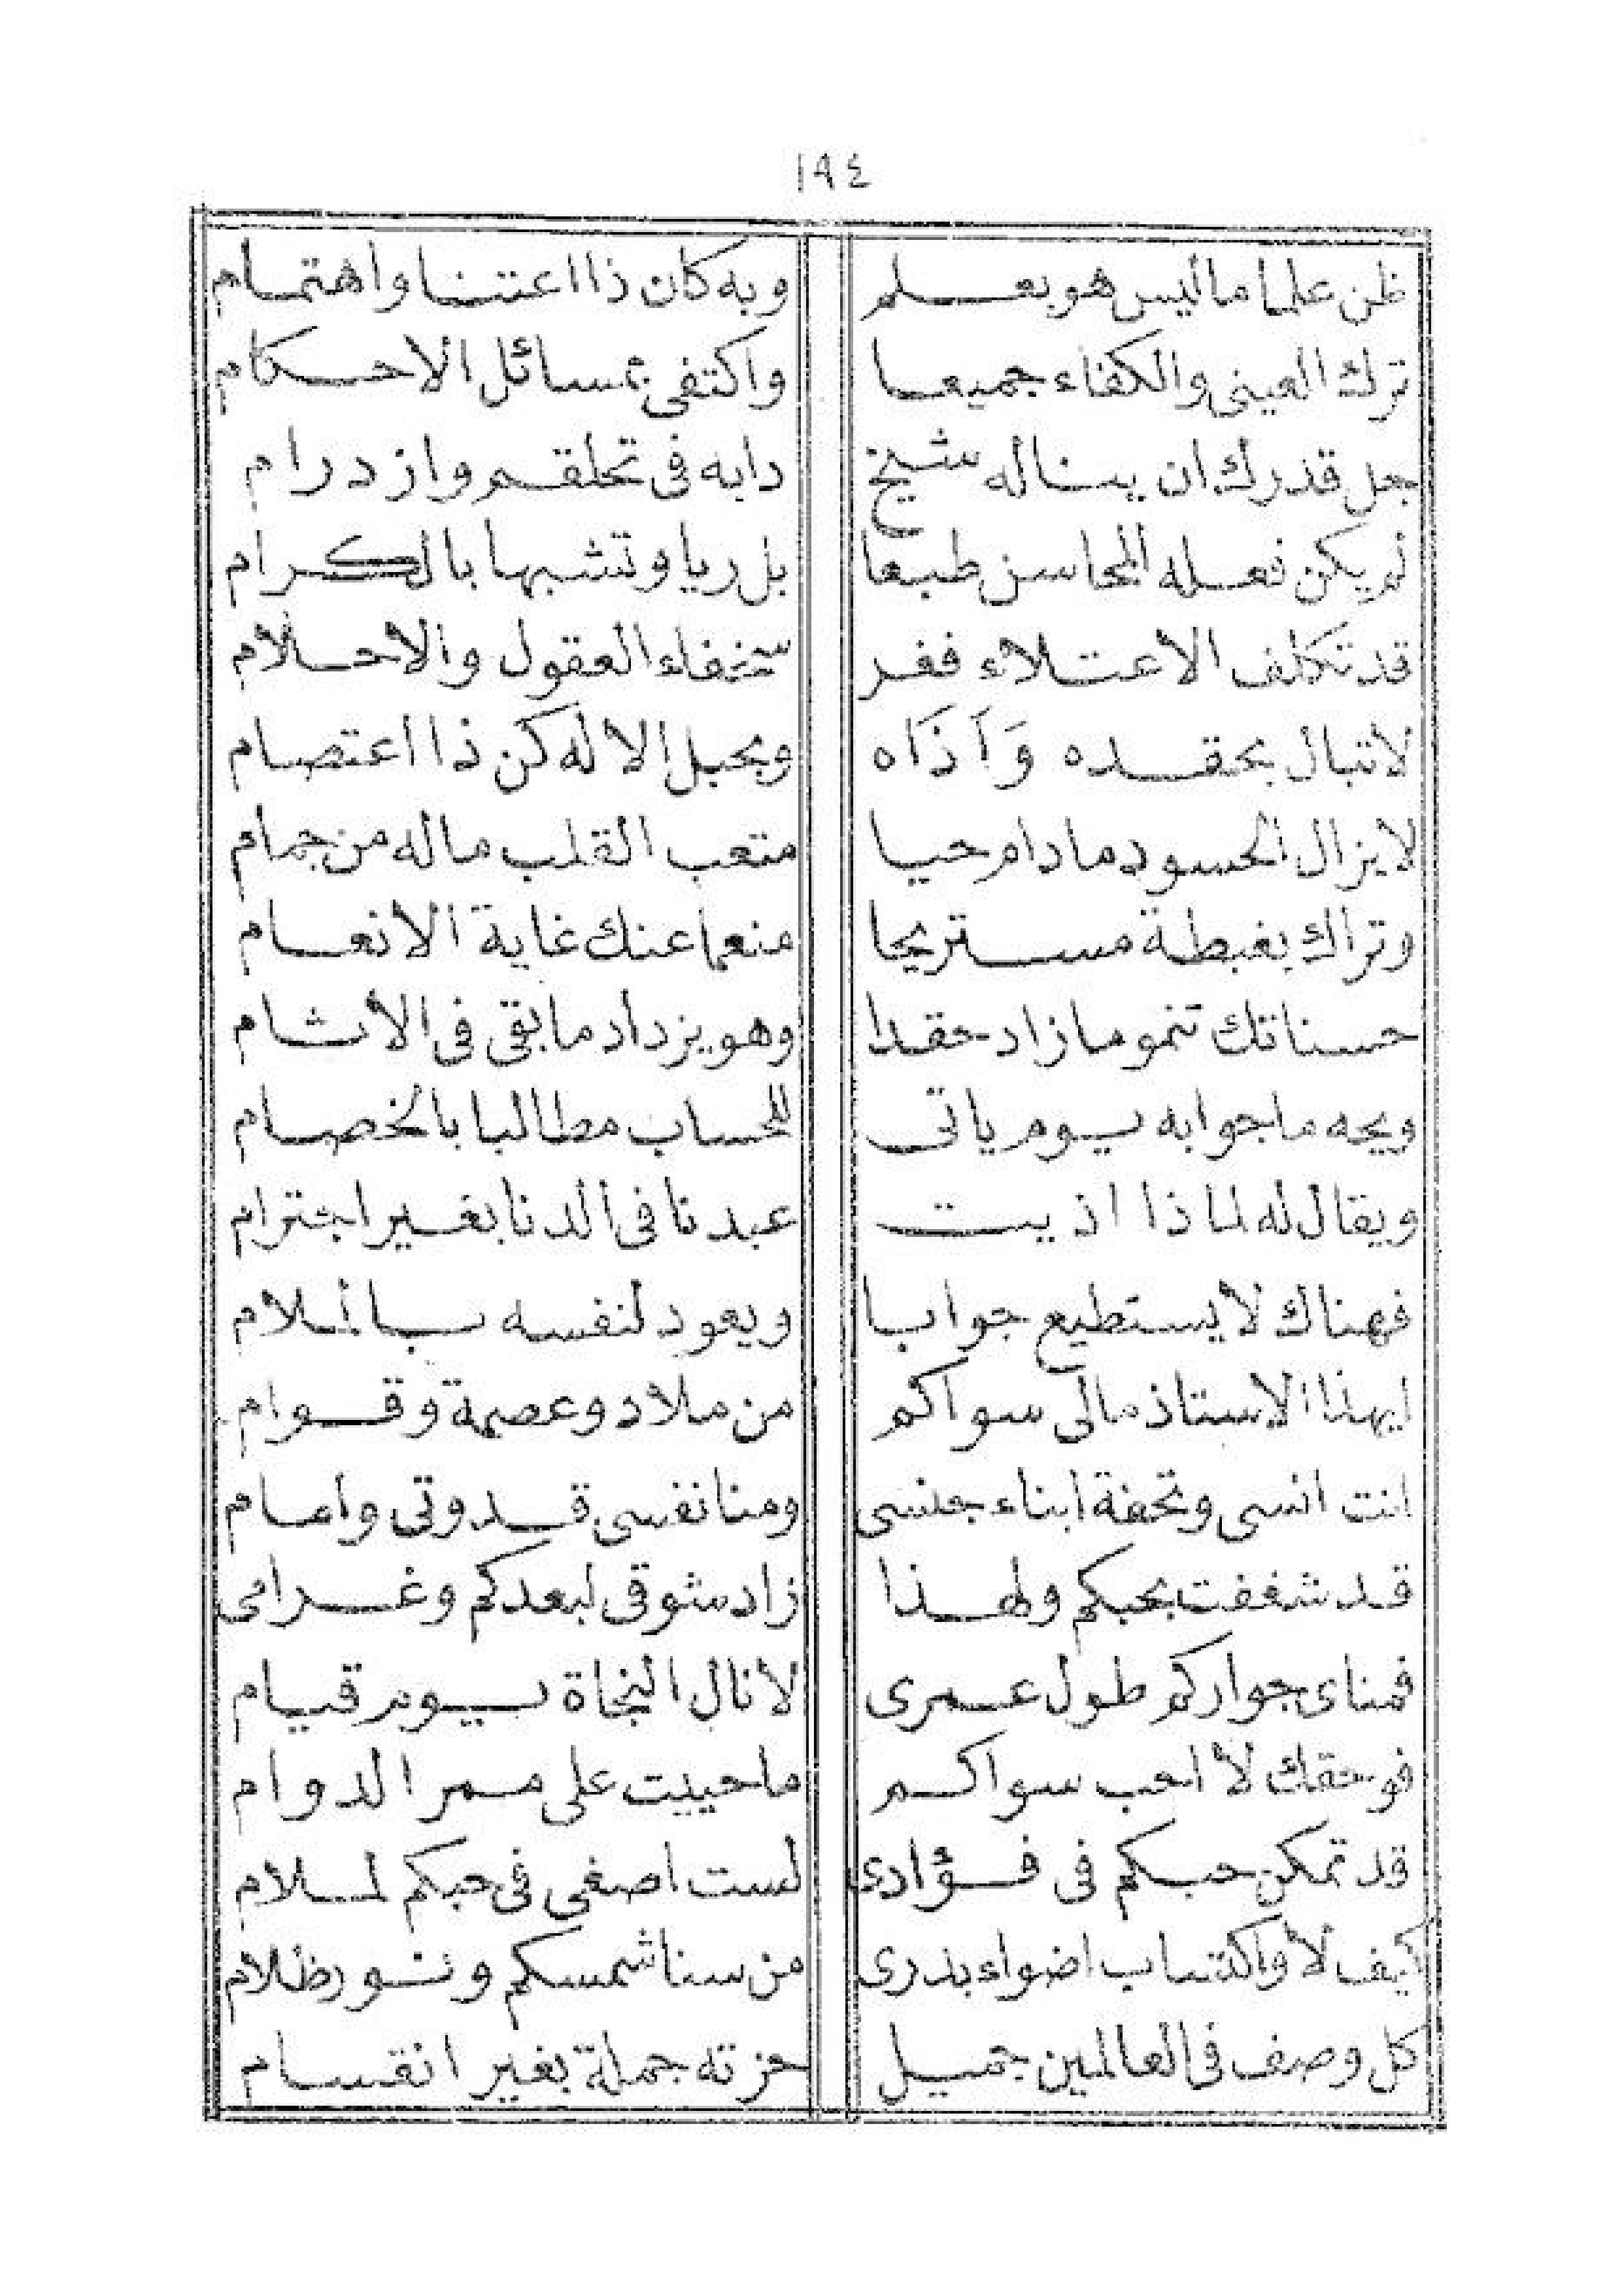 ١٩٤
ظن علما ما ليس هو بعلم وبه كان ذا اعتنا واهتمام
ترك العينى والكفاء جميعا واكتفى بمسائل الاحكام
جل قدرك ان يناله شيخ دابه فى تحلقم وازدرام
لم يكن فعله المحاسن طبعا بل ريا وتشبها بالكرام
قد تكلف الاعتلاء ففر سخفاء العقول والاحلام
لاتبال بحقده وَآذَاه وبحبل الاله كن ذا اعتصام
لايزال الحسود مادام حيا متعب القلب ماله من جمام
وتراك بغبطة مستريحا منعما عنك غاية الانعام
حسناتك تنمو مازاد حقدا وهو يزداد مابقى فى الاثام
ويحه ماجوابه يوم ياتى للحساب مطالبا بالخصام
ويقال له لماذا اذيت عبدنا فى الدنا بغير اجترام
فهناك لايستطيع جوابا ويعود لنفسه بالملام
ايهذا الاستاذ مالى سواكم من ملاذ وعصمة وقوام
انت انسى وتحفة ابناء جنسى ومنا نفسى قدوتى وامام
قد شغفت بحبكم ولهذا زاد شوقى لبعدكم وغرامى
فمناى جواركم طول عمرى لانال النجاة بيوم قيام
فوحقك لا احب سواكم ماحييت على ممر الدوام
قد تمكن حبكم فى فؤادى لست اصغى فى حبكم لملام
كيف لا واكتساب اضواء بدرى من سنا شمسكم ونور ظلام
كل وصف فى العالمين جميل حزته جملة بغير انقسام